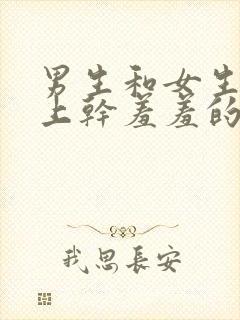 男生和女生
上幹羞羞的
我思長安